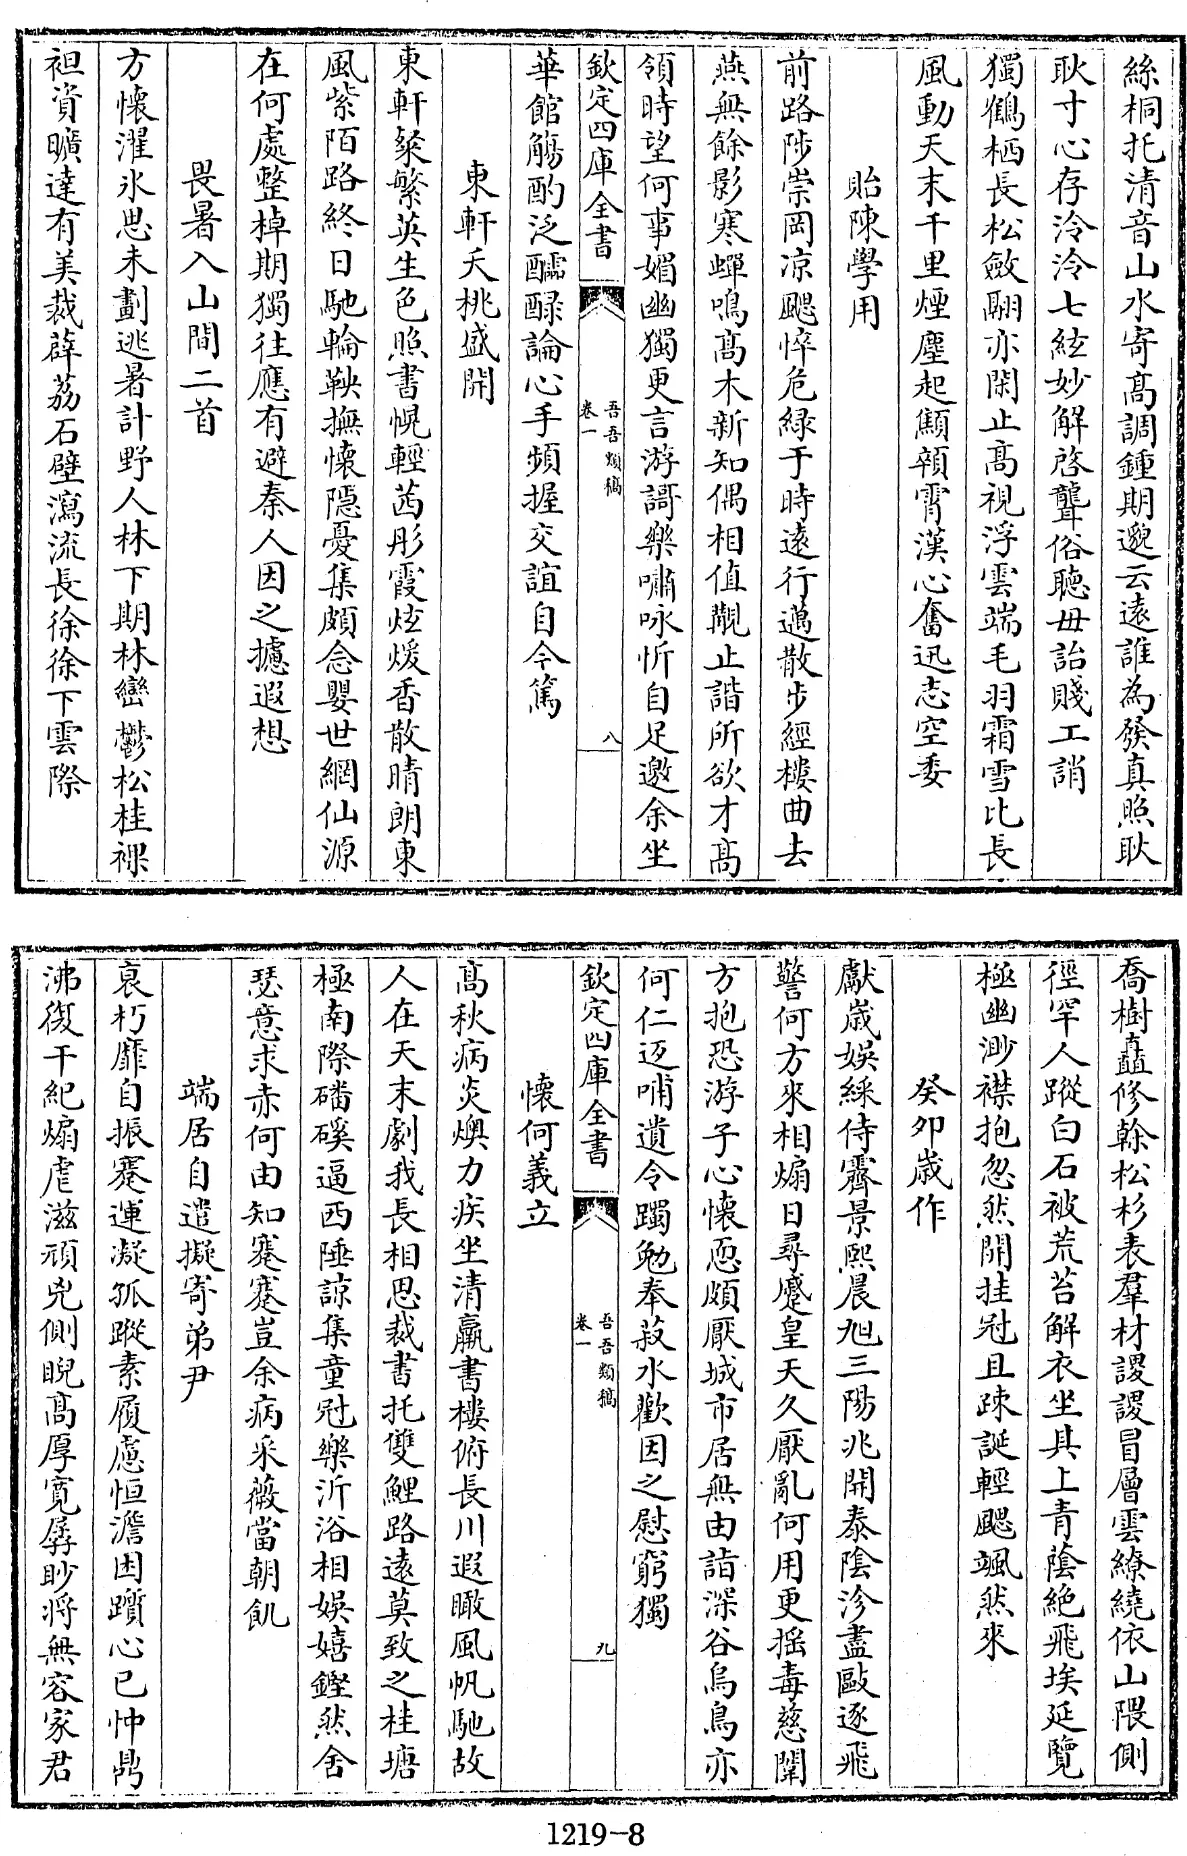 絲桐托清音山水寄髙調鍾期邈云遠誰為發真照耿
耿寸心存泠泠七絃妙解啓聾俗聽毋詒賤工誚
獨鶴栖長松斂翮亦閑止髙視浮雲端毛羽霜雪比長
風動天末千里煙塵起顒顙霄漢心奮迅志空委
貽陳學用
前路陟崇岡凉颸悴危緑于時逺行邁散步經樓曲去
燕無餘影寒蟬鳴髙木新知偶相值覯止諧所欲才髙
領時望何事媚幽獨更言游謌樂嘯咏忻自足邀余坐
欽定四庫全書
吾吾類稿
卷一
八
華館觴酌泛醽醁論心手頻握交誼自今篤
東軒夭桃盛開
東軒粲繁英生色照書幌輕茜彤霞炫煖香散晴朗東
風紫陌路終日馳輪鞅撫懷隠憂集頗念嬰世網仙源
在何處整棹期獨往應有避秦人因之攄遐想
畏暑入山間二首
方懷濯氷思未劃逃暑計野人林下期林巒鬱松桂裸
袒資曠達有美裁薜荔石壁瀉流長徐徐下雲際
喬樹矗修榦松杉表羣材謖謖冒層雲繚繞依山隈側
徑罕人蹤白石被荒苔解衣坐其上青蔭絶飛埃延覽
極幽渺襟抱忽然開挂冠且踈誕輕颸颯然來
癸夘嵗作
獻嵗娱綵侍霽景熙晨旭三陽兆開泰陰沴盡敺逐飛
警何方來相煽日尋蹙皇天久厭亂何用更揺毒慈闈
方抱恐游子心懷恧頗厭城市居無由詣深谷烏鳥亦
何仁返哺遺令躅勉奉菽水歡因之慰窮獨
欽定四庫全書
吾吾類稿
卷一
九
懷何義立
髙秋病炎燠力疾坐清羸書樓俯長川遐瞰風帆馳故
人在天末劇我長相思裁書托雙鯉路遠莫致之桂塘
極南際磻磎逼西陲諒集童冠樂沂浴相娱嬉鏗然舍
瑟意求赤何由知蹇蹇豈余病采薇當朝飢
端居自遣擬寄弟尹
衰朽靡自振蹇運凝孤蹤素履慮恒澹困躓心已忡鼎
沸復干紀煽虐滋頑兇側睨髙厚寛孱眇將無容家君
1219-8